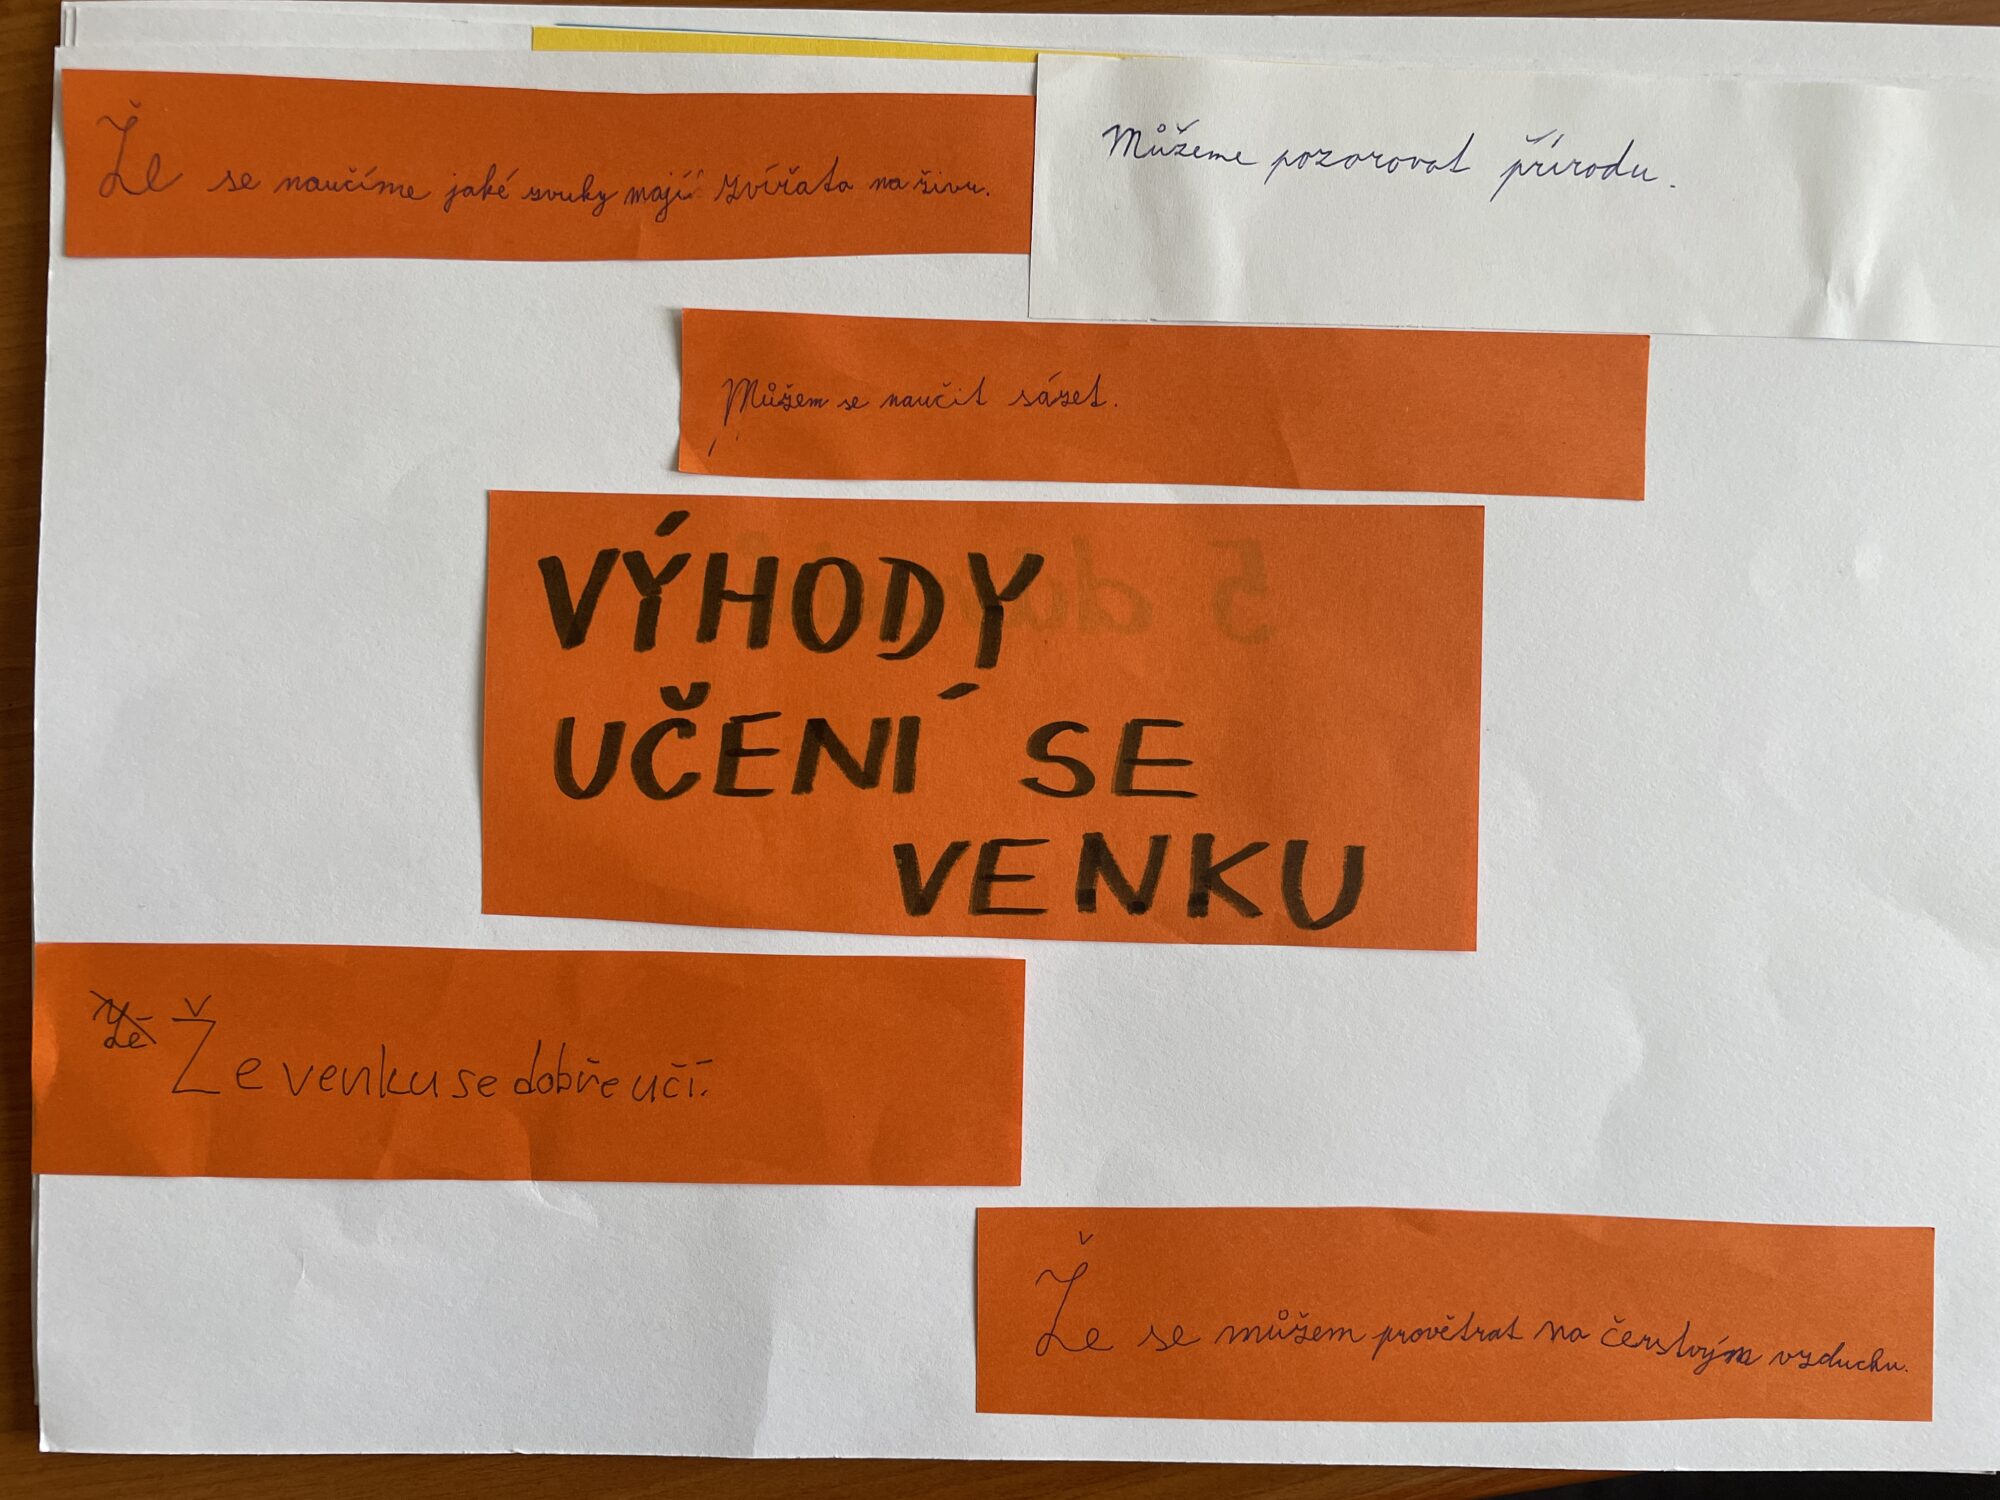 Že se naučíme jaké zvuky mají zvířata na živu.
Můžeme pozorovat přírodu.
Můžem se naučit sázet.
VÝHODY
UČENÍ SE
VENKU
Že venku se dobře učí.
Že se můžem provětrat na čerstvým vzduchu.